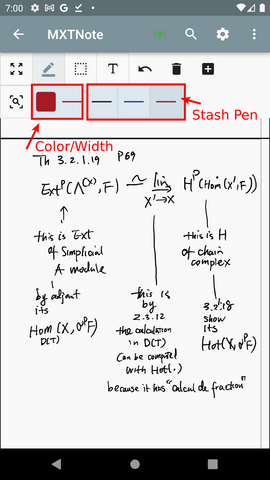 7:00
MXTNote
T
Stash Pen
Color/Width
Th 3.2.1.19 P69
Ext^p(Λ^(X), F) ≃ lim X'→X H^p(Hom(X', F))
this is Ext
of Simplicial
A module
this is H
of chain
complex
by adjoint
its
Hom(X, σ^pF)
D(T)
this is
by
2.3.12
the calculation
in D(T)
Can be computed
with Hot(.)
3.2.18
show
its
Hot(X, σ^pF)
because it has "calcul de fraction"